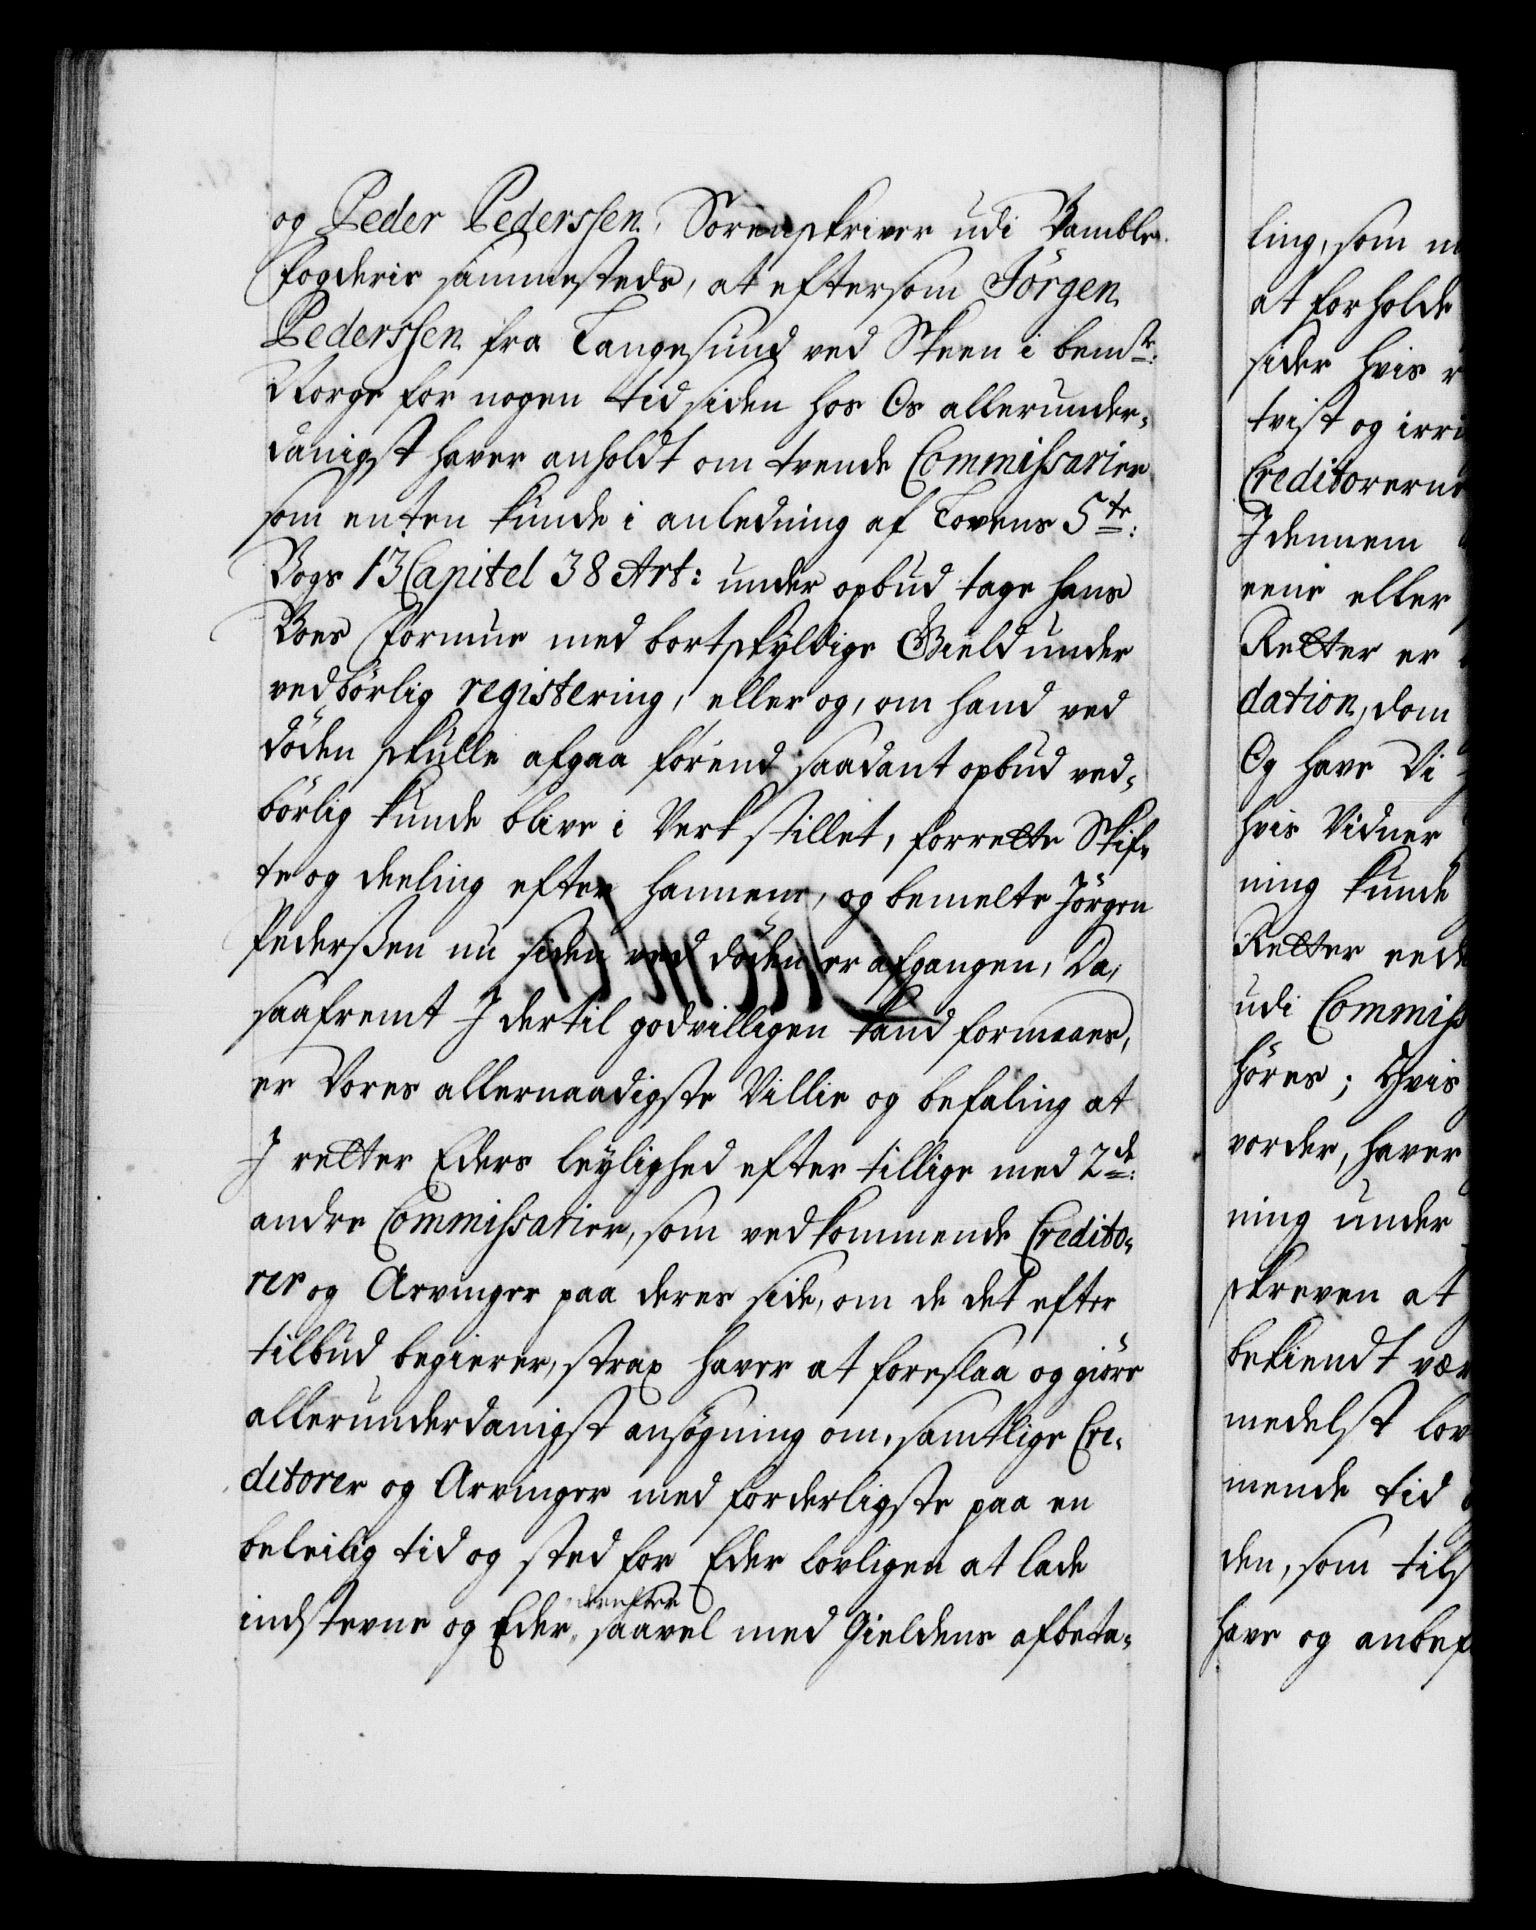 og Peder Pederssen, Sorenskriver udi Bamble
fogderie sammesteds, at eftersom Jörgen
Pederssen fra Langesund ved Skeen i bemte:
Norge for nogen tid siden hos Os allerunder-
danigst haver anholdt om tvende Commissarier
som enten kunde i anledning af Lovens 5te:
Bogs 13 Capitel 38 Art: under opbud tage hans
Boes formue med bortskyldige Gield under
vedbörlig registering, eller og, om hand ved
döden skulle afgaa förend saadant opbud ved-
börlig kunde blive i Verk stillet, forrette Skif-
te og deeling efter hannem, og bemelte Jörgen
Pederssen nu siden ved döden er afgangen, Da,
saafremt I dertil godvilligen kand formaaes,
er Vores allernaadigste Villie og befaling at
I retter Eders leylighed efter tillige med 2de:
andre Commissarier, som vedkommende Credito-
rer og Arvinger paa deres side, om de det efter
tilbud begierer, strax haver at foreslaa og giöre
allerunderdanigst ansögning om, samtlige Cre-
ditorer og Arvinger med forderligste paa en
beleilig tid og sted for Eder lovligen at lade
indstevne og Eder derefter saavel med Gieldens afbeta-
ling, som
at forholde
sider hvis
tvist og
Creditorerne
I dennem
eene eller
Retter er
dation, dom
Og have Vi
hvis Vidner
ning kunde
Retter
udi
höres; Hvis
vorder, haver
ning under
skreven at
bekiendt
medelst
mende tid
den, som
have og